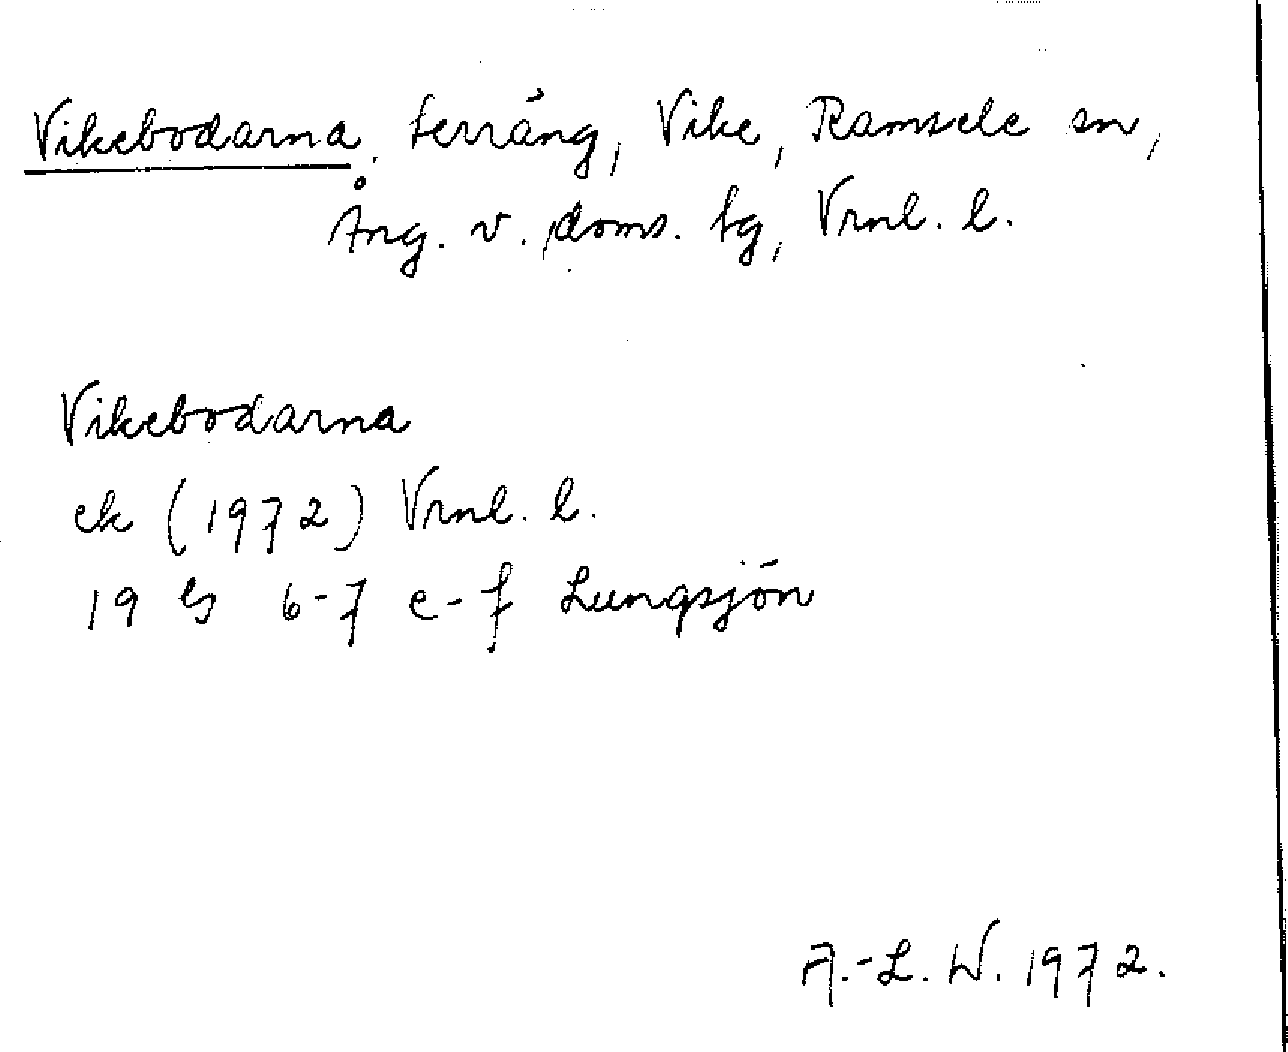 Vikebodarna, terräng, Vike, Ramsele sn,
Ång. v. doms. tg, Vrnl. l.
Vikebodarna
ek (1972) Vrnl. l.
19 G 6-7 e-f Lungsjön
A.-L. W. 1972.